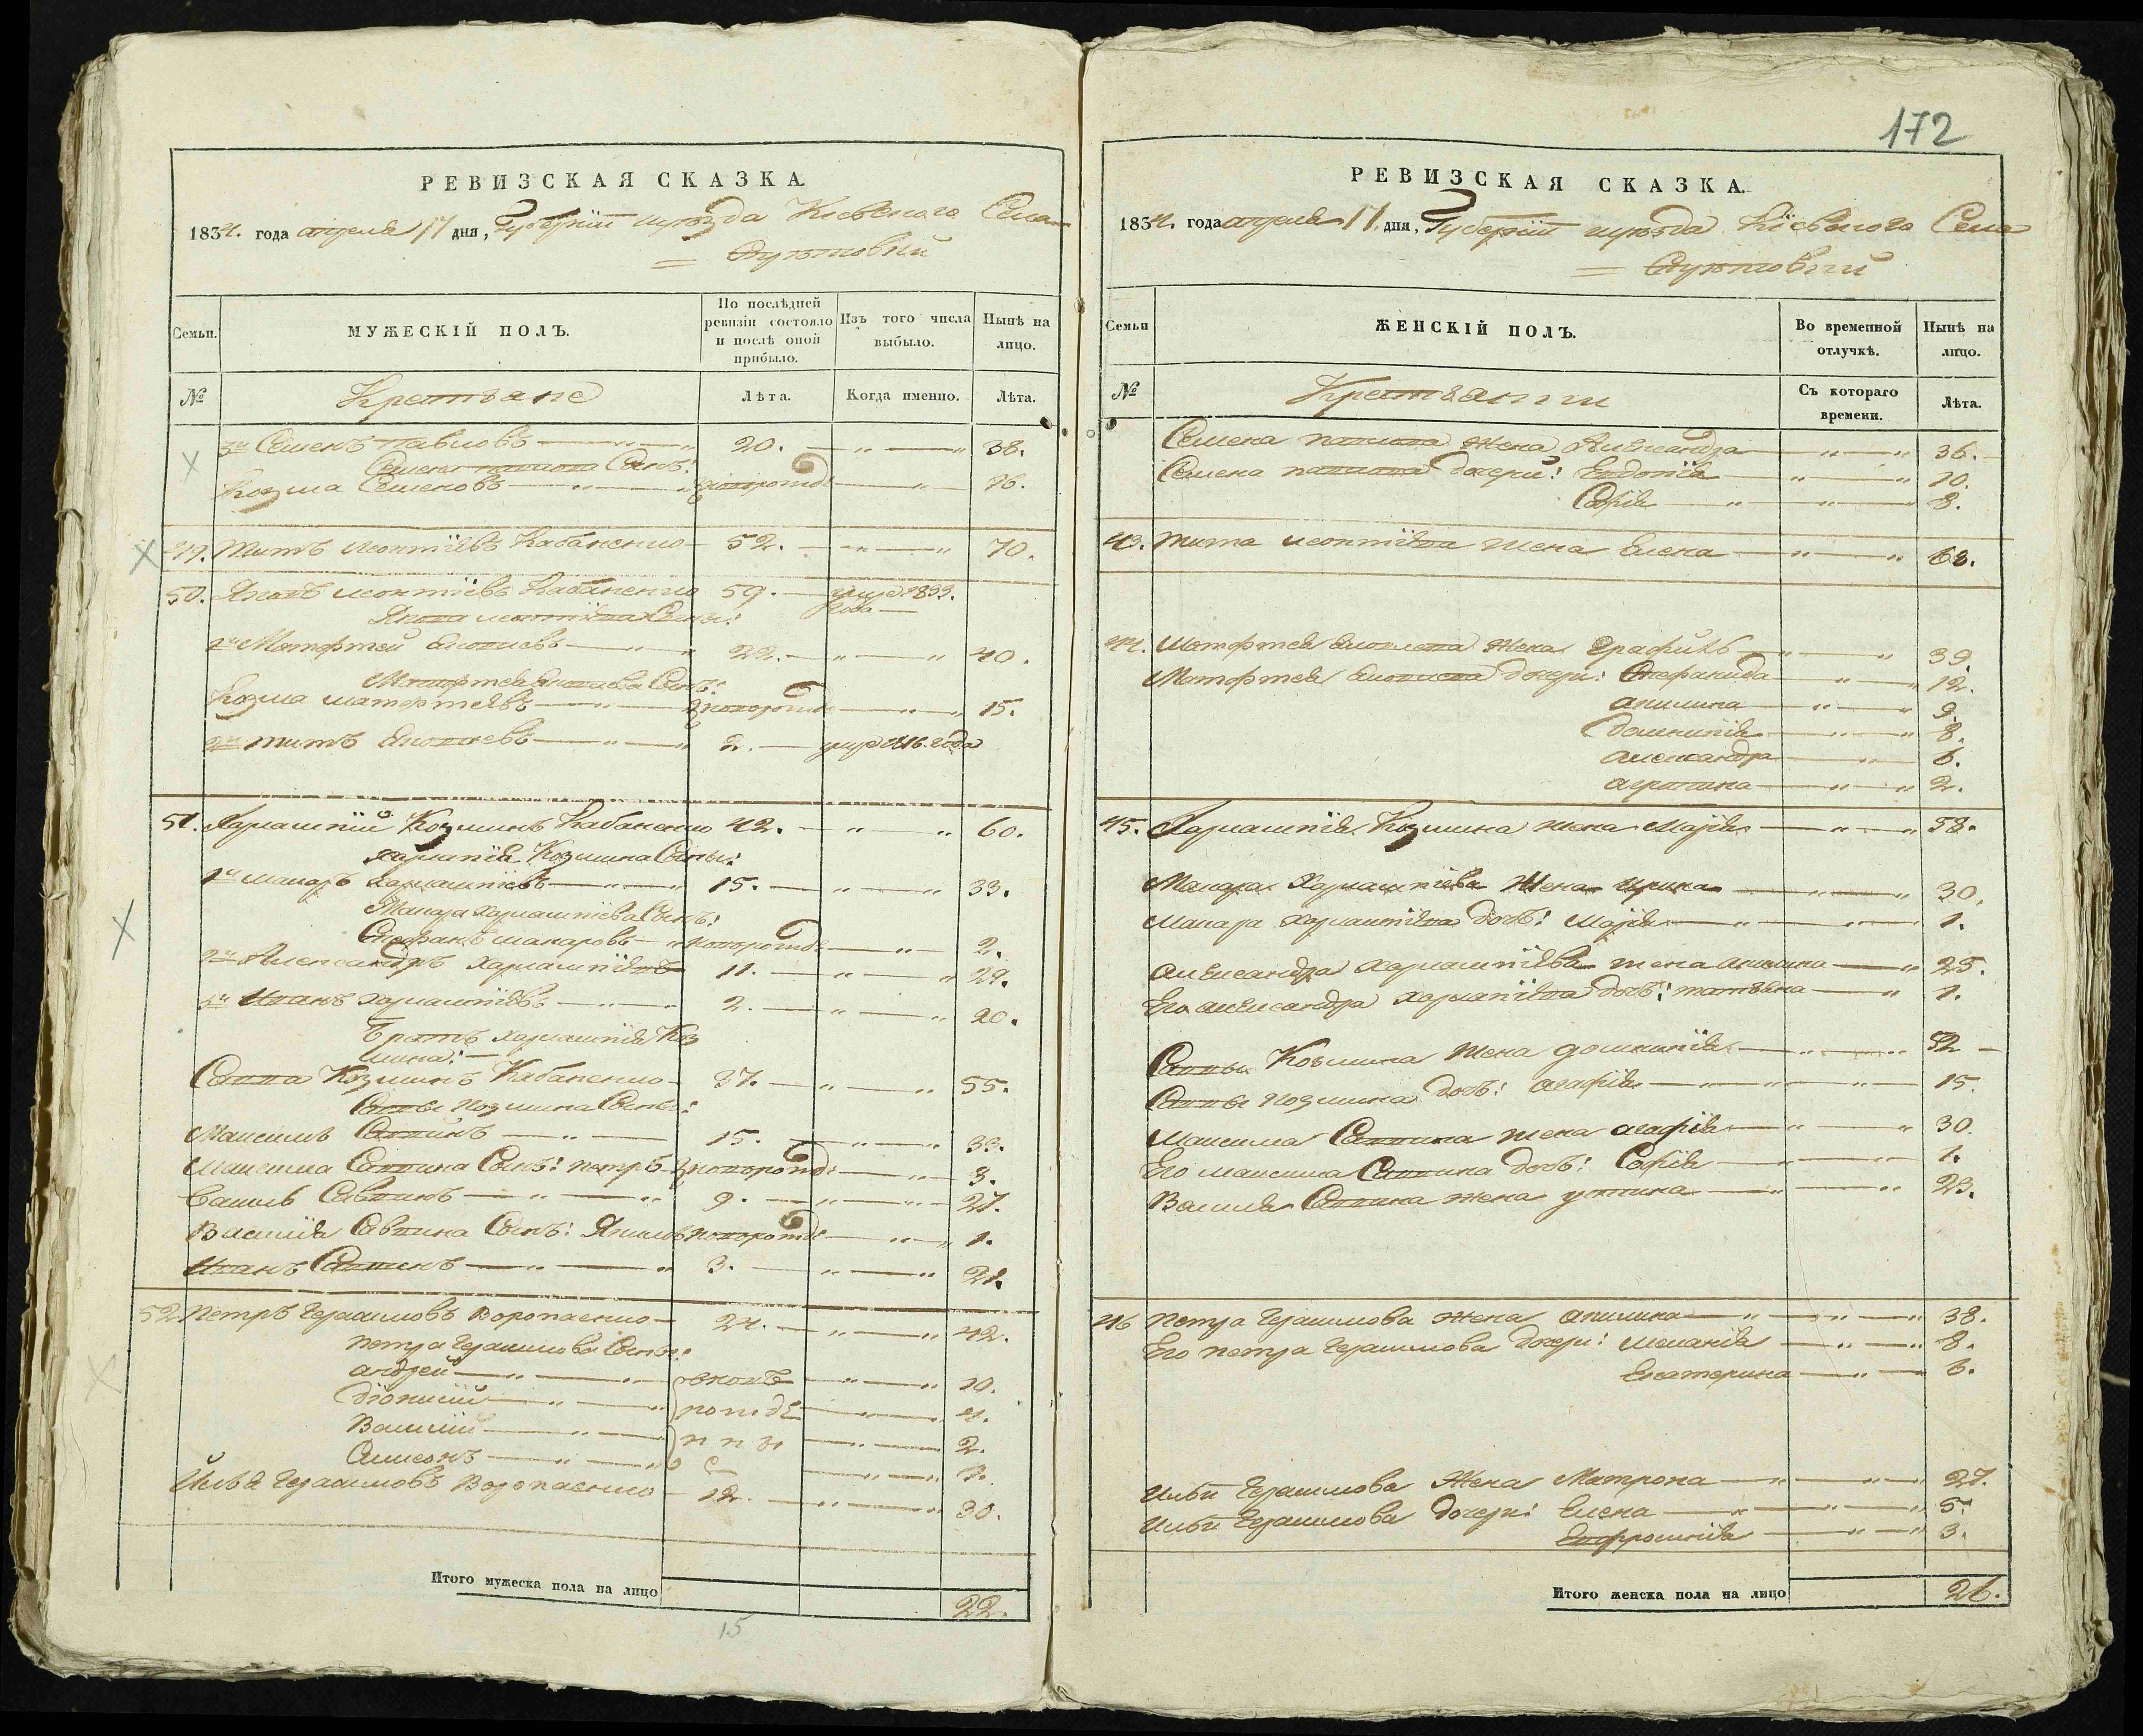 РЕВИЗСКАЯ СКАЗКА.
1834. года апреля 17 дня, Губернїи и уѣзда Кіевского Села
Семьи.
МУЖЕСКІЙ ПОЛЪ.
По послѣдней ревизіи состояло и послѣ оной прибыло.
Изъ того числа выбыло.
Нынѣ на лицо.
№
Лѣта.
Когда именно.
Лѣта.
3й Семенъ Павловъ — „ — „ 20. — „ — „ 38.
Семена Павлова Сынъ:
Козма Семеновъ — „ — „ новорожд — „ — 16.
49. Титъ Леонтїевъ Кабаненко 52. — „ — „ 70.
50. Яковъ Леонтїевъ Кабаненко 59. — умре 1833. года —
Якова Леонтїева Сыны:
1й Матфтей Яковлевъ — „ — „ 22. — „ — „ 40.
Матфтея Яковлева Сынъ:
Козма Матфтеевъ — „ — новорожд — „ — „ 15.
2й Титъ Яковлевъ — „ — „ 2. — умре 1816. года
51. Харлампій Козминъ Кабаненко 42. — „ „ 60.
Харлампія Козмина Сыны:
1й Макаръ Харлампїевъ — „ — „ 15. — „ — „ 33.
Макара Харлампїева Сынъ:
Стефанъ Макаровъ — „ новорожд — „ — 2.
2й Александръ Харлампїевъ 11. — „ — „ 29.
3й Иванъ Харлампїевъ — „ — 2. — „ — „ 20.
Братъ Харлампія Коз
мина: —
Савва Козминъ Кабаненко — 37. — „ — „ 55.
Саввы Козмина Сыны:
Максимъ Саввинъ — „ — 15. — „ — „ 33.
Максима Саввина Сынъ: Петръ новорожд — „ — 3.
Василь Саввинъ — „ — „ 9. — „ — „ 27.
Василія Саввина Сынъ: Якимъ новорожд — „ — „ 1.
Иванъ Саввинъ — „ — „ 3. — „ — „ 21.
52. Петръ Герасимовъ Воропаенко — 24. — „ — „ 42.
Петра Герасимова Сыны:
Андрей — „ — „ — „ — „ 10.
Діонисій — „ — „ — „ — „ 4.
Василій — „ — „ — „ — 2.
Симеонъ — „ — „ — „ — „ 1.
Илья Герасимовъ Воропаенко — 12. — „ — „ 30.
Итого мужеска пола на лицо 22.
15
172
РЕВИЗСКАЯ СКАЗКА.
1834. года апреля 17. дня, Губернїи и уѣзда Кїевского Села
Семьи
ЖЕНСКІЙ ПОЛЪ.
Во временной отлучкѣ.
Нынѣ на лицо.
№
Съ котораго времени.
Лѣта.
Семена Павлова Жена Александра — „ — „ 36.
Семена Павлова дочери: Евдотїя — „ — „ 10.
Софїя — „ — „ — „ 8.
43. Тита Леонтїева Жена Елена — „ — „ 68.
44. Матфтея Яковлева Жена — „ — „ 39.
Матфтея Яковлева дочери: Стефанида — „ — „ 12.
Акилина — „ — „ 9.
Домникїя — „ — „ 8.
Александра — „ — 6.
Агрипина — „ — „ 2.
45. Харлампїя Козмина жена Марїя — „ — „ 58.
Макара Харлампїева Жена Ирина — „ — „ 30.
Макара Харлампїева дочь: Марїя — „ — „ 1.
Александра Харлампїева жена Акилина — „ 25.
Его Александра Харлампїева дочь: Татьяна — „ 1.
Саввы Козмина Жена Домникїя — „ — „ 52 —
Саввы Козмина дочь: Агафїя — „ — „ 15.
Максима Саввина жена Агафїя — „ — „ 30.
Его Максима Саввина дочь: Софїя — „ — „ 1.
Василя Саввина Жена Устина — „ — „ 23.
46 Петра Герасимова Жена Акилина — „ — „ — „ 38.
Его Петра Герасимова дочери: Меланїя — „ — „ 8.
Екатерина — „ — 6.
Ильи Герасимова Жена Матрона — „ — „ — 27.
Ильи Герасимова дочери: Елена — „ — „ — „ 5.
Евфросинїя — „ — „ 3.
Итого женска пола на лицо 26.